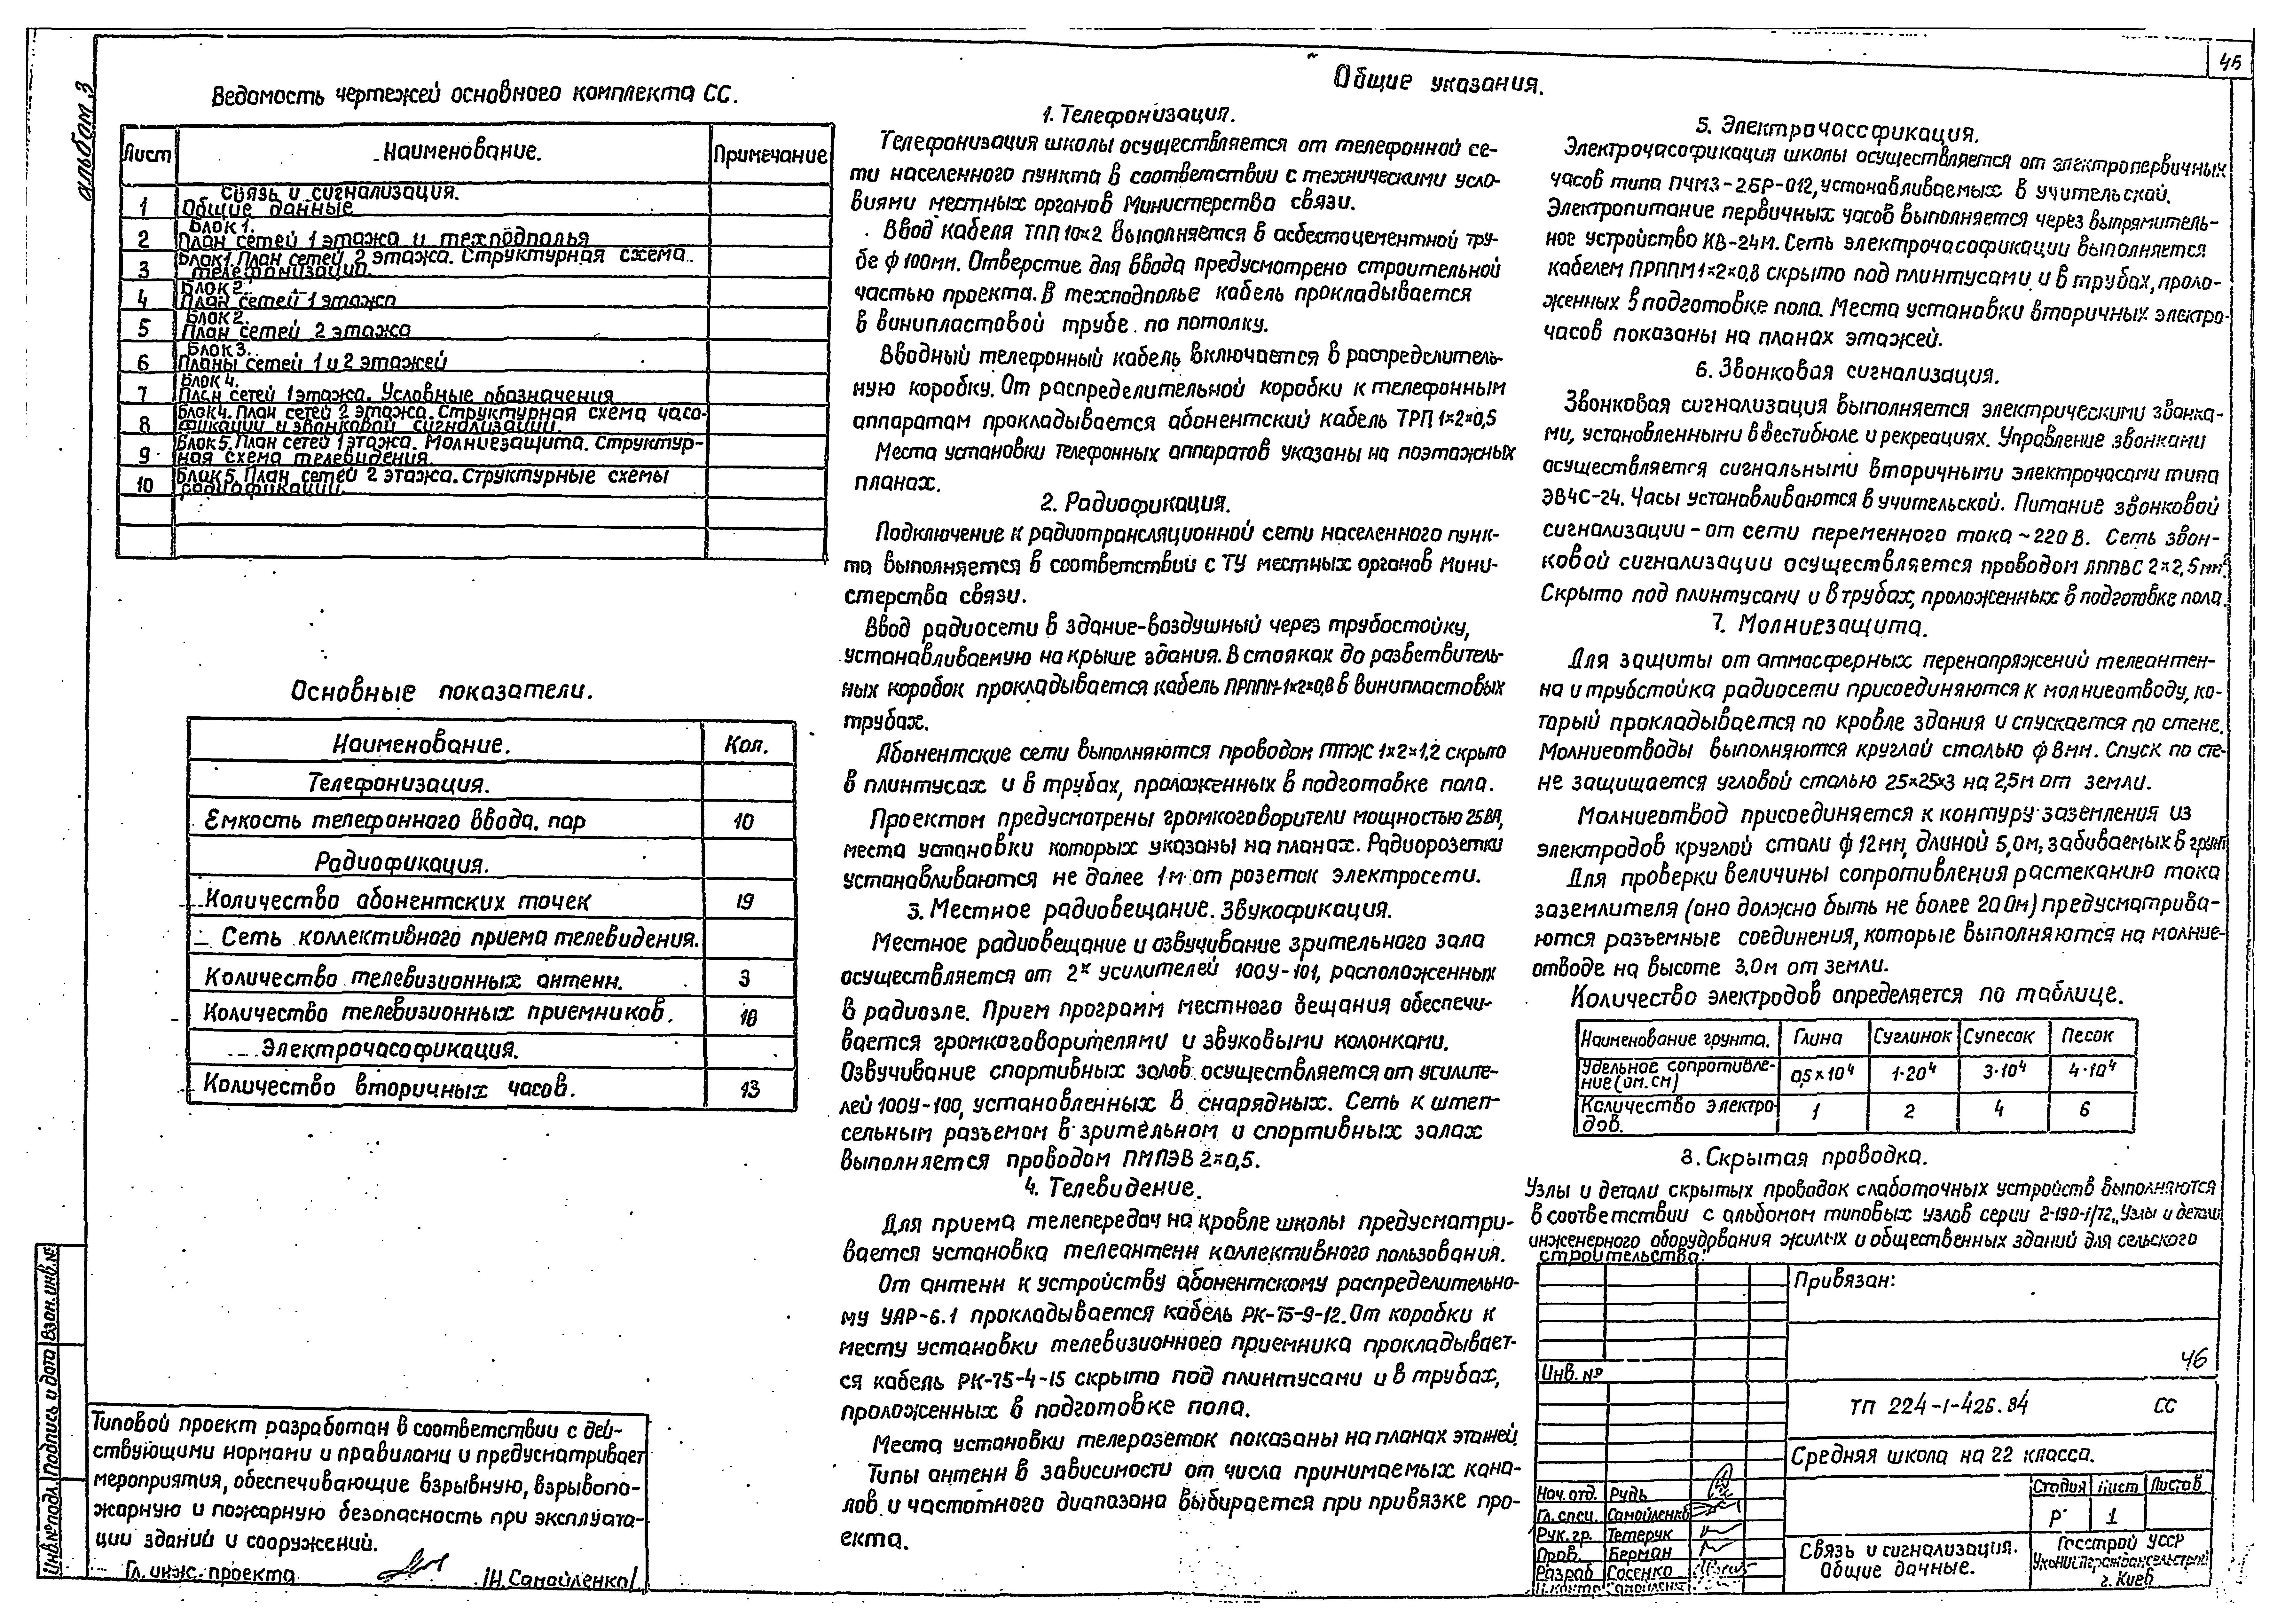 46
альбом 3
Ведомость чертежей основного комплекта СС.
Лист Наименование. Примечание
1 Связь и сигнализация.
Общие данные
2 Блок 1.
План сетей 1 этажа и техподполья
3 Блок 1. План сетей 2 этажа. Структурная схема
телефонизации.
4 Блок 2.
План сетей 1 этажа
5 Блок 2.
План сетей 2 этажа
6 Блок 3.
Планы сетей 1 и 2 этажей
7 Блок 4.
План сетей 1 этажа. Условные обозначения
8 Блок 4. План сетей 2 этажа. Структурная схема часо-
фикации и звонковой сигнализации.
9 Блок 5. План сетей 1 этажа. Молниезащита. Структур-
ная схема телевидения.
10 Блок 5. План сетей 2 этажа. Структурные схемы
радиофикации.
Основные показатели.
Наименование. Кол.
Телефонизация.
Емкость телефонного ввода. пар 10
Радиофикация.
Количество абонентских точек 19
Сеть коллективного приема телевидения.
Количество телевизионных антенн. 3
Количество телевизионных приемников. 18
Электрочасофикация.
Количество вторичных часов. 13
Типовой проект разработан в соответствии с дей-
ствующими нормами и правилами и предусматривает
мероприятия, обеспечивающие взрывную, взрывопо-
жарную и пожарную безопасность при эксплуата-
ции зданий и сооружений.
Гл. инж. проекта /Н.Самойленко/
Инв.№ подл. Подпись и дата Взам.инв.№
Общие указания.
1. Телефонизация.
Телефонизация школы осуществляется от телефонной се-
ти населенного пункта в соответствии с техническими усло-
виями местных органов Министерства связи.
Ввод кабеля ТПП 10×2 выполняется в асбестоцементной тру-
бе ф 100мм. Отверстие для ввода предусмотрено строительной
частью проекта. В техподполье кабель прокладывается
в винипластовой трубе по потолку.
Вводный телефонный кабель включается в распределитель-
ную коробку. От распределительной коробки к телефонным
аппаратам прокладывается абонентский кабель ТРП 1×2×0,5
Места установки телефонных аппаратов указаны на поэтажных
планах.
2. Радиофикация.
Подключение к радиотрансляционной сети населенного пунк-
та выполняется в соответствии с ТУ местных органов Мини-
стерства связи.
Ввод радиосети в здание-воздушный через трубостойку,
устанавливаемую на крыше здания. В стояках до разветвитель-
ных коробок прокладывается кабель ПРППМ-1×2×0,8 в винипластовых
трубах.
Абонентские сети выполняются проводом ПТПЖ 1×2×1,2 скрыто
в плинтусах и в трубах, проложенных в подготовке пола.
Проектом предусмотрены громкоговорители мощностью
места установки которых указаны на планах. Радиорозетки
устанавливаются не далее 1м от розеток электросети.
3. Местное радиовещание. Звукофикация.
Местное радиовещание и озвучивание зрительного зала
осуществляется от 2х усилителей 100У-101, расположенных
в радиозле. Прием программ местного вещания обеспечи-
вается громкоговорителями и звуковыми колонками.
Озвучивание спортивных залов осуществляется от усилите-
лей 100У-100, установленных в снарядных. Сеть к штеп-
сельным разъемам в зрительном и спортивных залах
выполняется проводом ПМПЭВ 2×0,5.
4. Телевидение.
Для приема телепередач на кровле школы предусматри-
вается установка телеантенн коллективного пользования.
От антенн к устройству абонентскому распределительно-
му УАР-6.1 прокладывается кабель РК-75-9-12. От коробки к
месту установки телевизионного приемника прокладывает-
ся кабель РК-75-4-15 скрыто под плинтусами и в трубах,
проложенных в подготовке пола.
Места установки телерозеток показаны на планах этажей.
Типы антенн в зависимости от числа принимаемых кана-
лов и частотного диапазона выбирается при привязке про-
екта.
5. Электрочассфикация.
Электрочасофикация школы осуществляется от электропервичных
часов типа ПЧМ3-2БР-012, устанавливаемых в учительской.
Электропитание первичных часов выполняется через выпрямитель-
ное устройство КВ-24м. Сеть электрочасофикации выполняется
кабелем ПРППМ 1×2×0,8 скрыто под плинтусами и в трубах, проло-
женных в подготовке пола. Места установки вторичных электро-
часов показаны на планах этажей.
6. Звонковая сигнализация.
Звонковая сигнализация выполняется электрическими звонка-
ми, установленными в вестибюле и рекреациях. Управление звонками
осуществляется сигнальными вторичными электрочасами типа
ЭВЧС-24. Часы устанавливаются в учительской. Питание звонковой
сигнализации - от сети переменного тока ~220 В. Сеть звон-
ковой сигнализации осуществляется проводом АППВС 2×2,5мм².
Скрыто под плинтусами и в трубах, проложенных в подготовке пола.
7. Молниезащита.
Для защиты от атмосферных перенапряжений телеантен-
на и трубстойка радиосети присоединяются к молниеотводу, ко-
торый прокладывается по кровле здания и спускается по стене.
Молниеотводы выполняются круглой сталью ф 8мм. Спуск по сте-
не защищается угловой сталью 25×25×3 на 2,5м от земли.
Молниеотвод присоединяется к контуру заземления из
электродов круглой стали ф 12мм, длиной 5,0м, забиваемых в грунт
Для проверки величины сопротивления растеканию тока
заземлителя (оно должно быть не более 20 Ом) предусматрива-
ются разъемные соединения, которые выполняются на молние-
отводе на высоте 3,0м от земли.
Количество электродов определяется по таблице.
Наименование грунта. Глина Суглинок Супесок Песок
Удельное сопротивле-
ние (ом.см) 0,5×10⁴ 1·20⁴ 3·10⁴ 4·10⁴
Количество электро-
дов. 1 2 4 6
8. Скрытая проводка.
Узлы и детали скрытых проводок слаботочных устройств выполняются
в соответствии с альбомом типовых узлов серии 2-190-1/72 „Узлы и детали
инженерного оборудования жилых и общественных зданий для сельского
строительства".
Привязан:
Инв. №
46
ТП 224-1-426.84 СС
Средняя школа на 22 класса.
Стадия Лист Листов
Р 1
Нач. отд. Рудь
Гл. спец. Самойленко
Рук. гр. Тетерук
Пров. Берман
Разраб. Сосенко
Н.контр. Самойленко
Связь и сигнализация.
Общие данные.
Госстрой УССР
УкрНИИПграждансельстрой
г. Киев